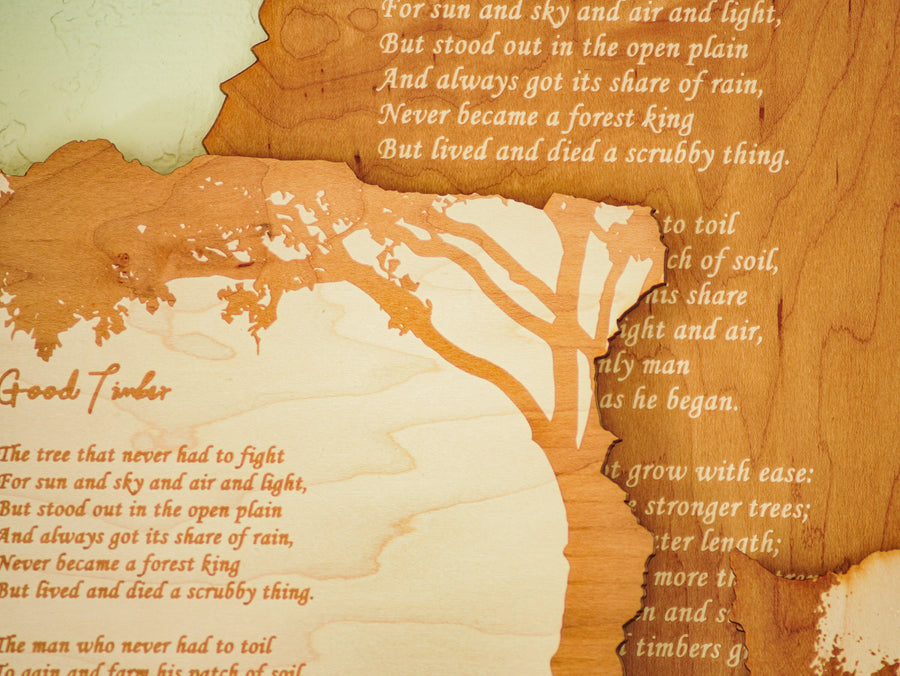 For sun and sky and air and light,
But stood out in the open plain
And always got its share of rain,
Never became a forest king
But lived and died a scrubby thing.
to toil
ch of soil,
his share
ight and air,
nly man
as he began.
t grow with ease:
stronger trees;
ter length;
more
n and s
timbers g
Good Timber
The tree that never had to fight
For sun and sky and air and light,
But stood out in the open plain
And always got its share of rain,
Never became a forest king
But lived and died a scrubby thing.
The man who never had to toil
To gain and farm his patch of soil